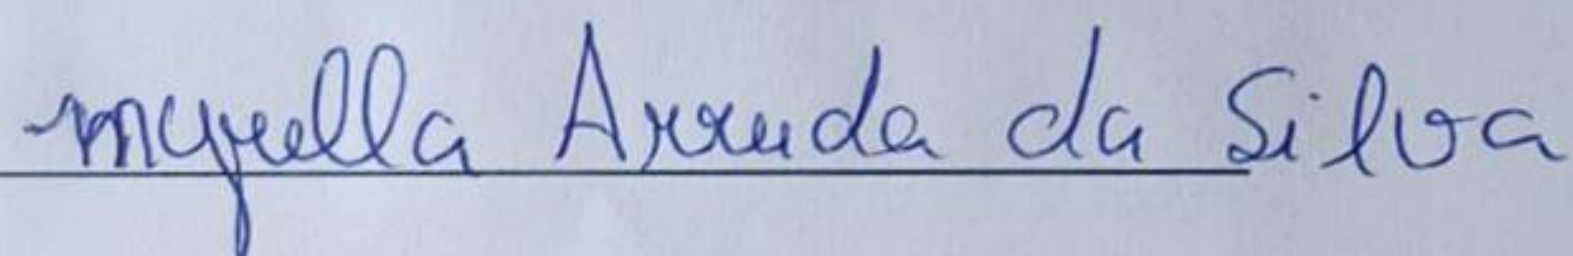 myrella Arruda da Silva